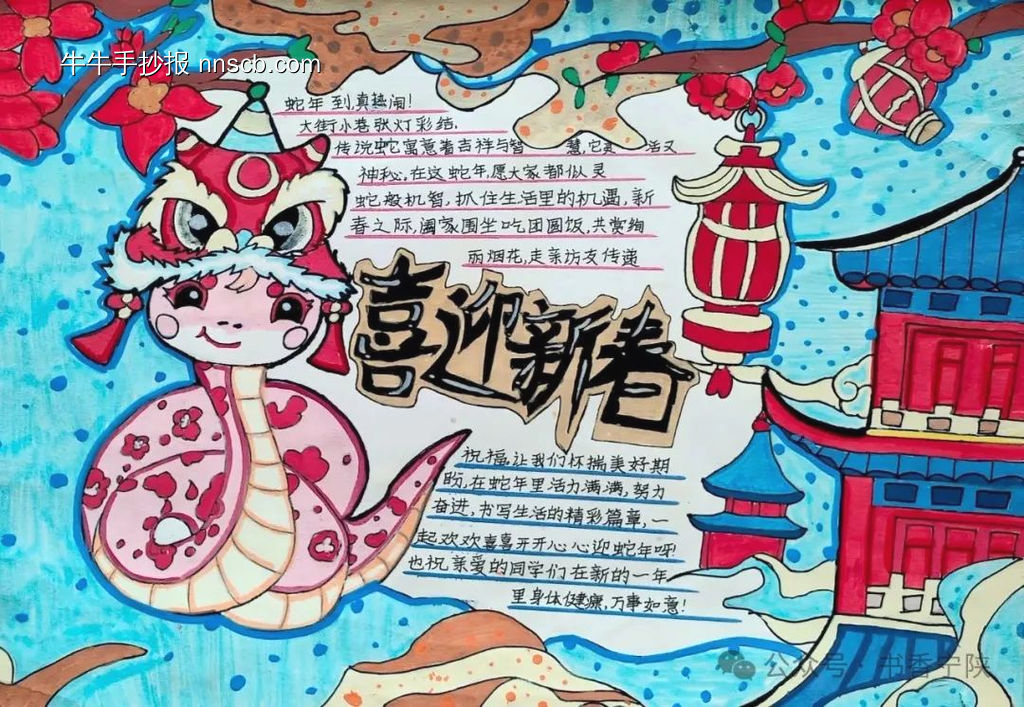 牛牛手抄报 nnscb.com
蛇年到,真热闹!
大街小巷张灯彩结.
传说蛇寓意着吉祥与智 慧,它灵 活又
神秘,在这蛇年,愿大家都似灵
蛇般机智,抓住生活里的机遇,新
春之际,阖家围坐吃团圆饭,共赏绚
丽烟花,走亲访友传递
喜迎新春
祝福,让我们怀揣美好期
盼,在蛇年里活力满满,努力
奋进,书写生活的精彩篇章,一
起欢欢喜喜开开心心迎蛇年呀!
也祝亲爱的同学们在新的一年
里身体健康,万事如意!
公众号·书香宁陕